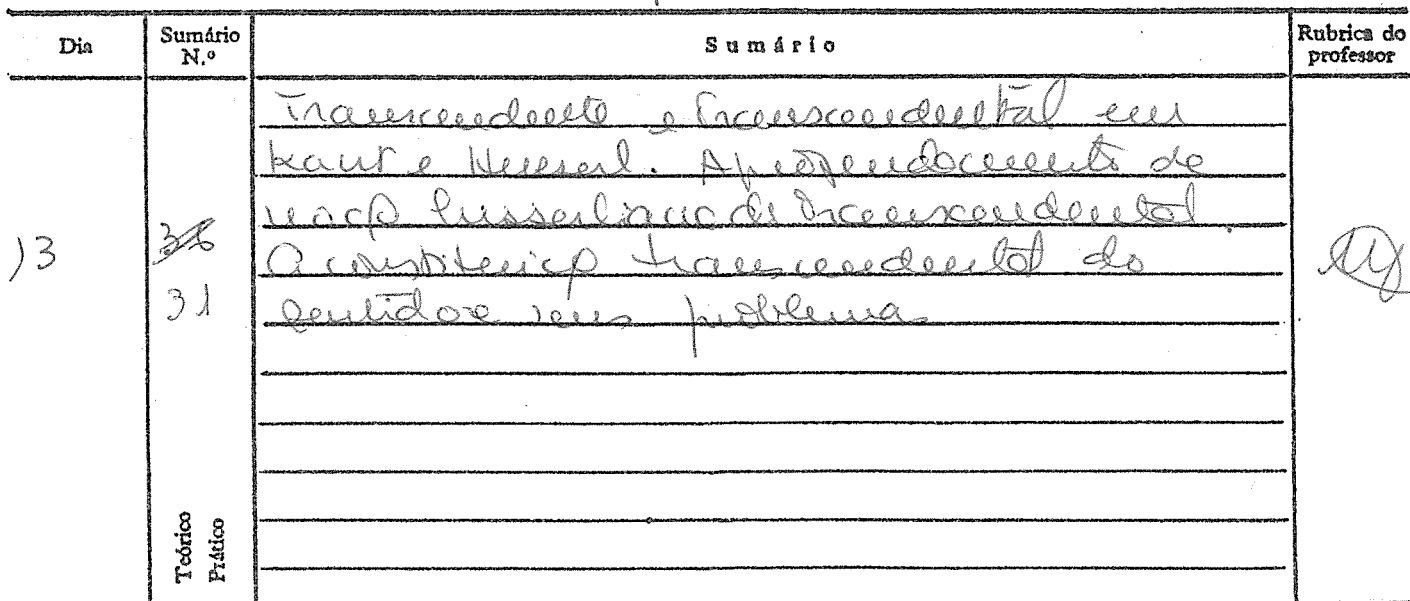 Dia
Sumário N.º
Sumário
Rubrica do professor
Transcendente e transcendental em
Kant e Husserl. Aprofundamento da
noção husserliana de transcendental
A constituição transcendental do
sentido e seus problemas
13
31
Teórico
Prático